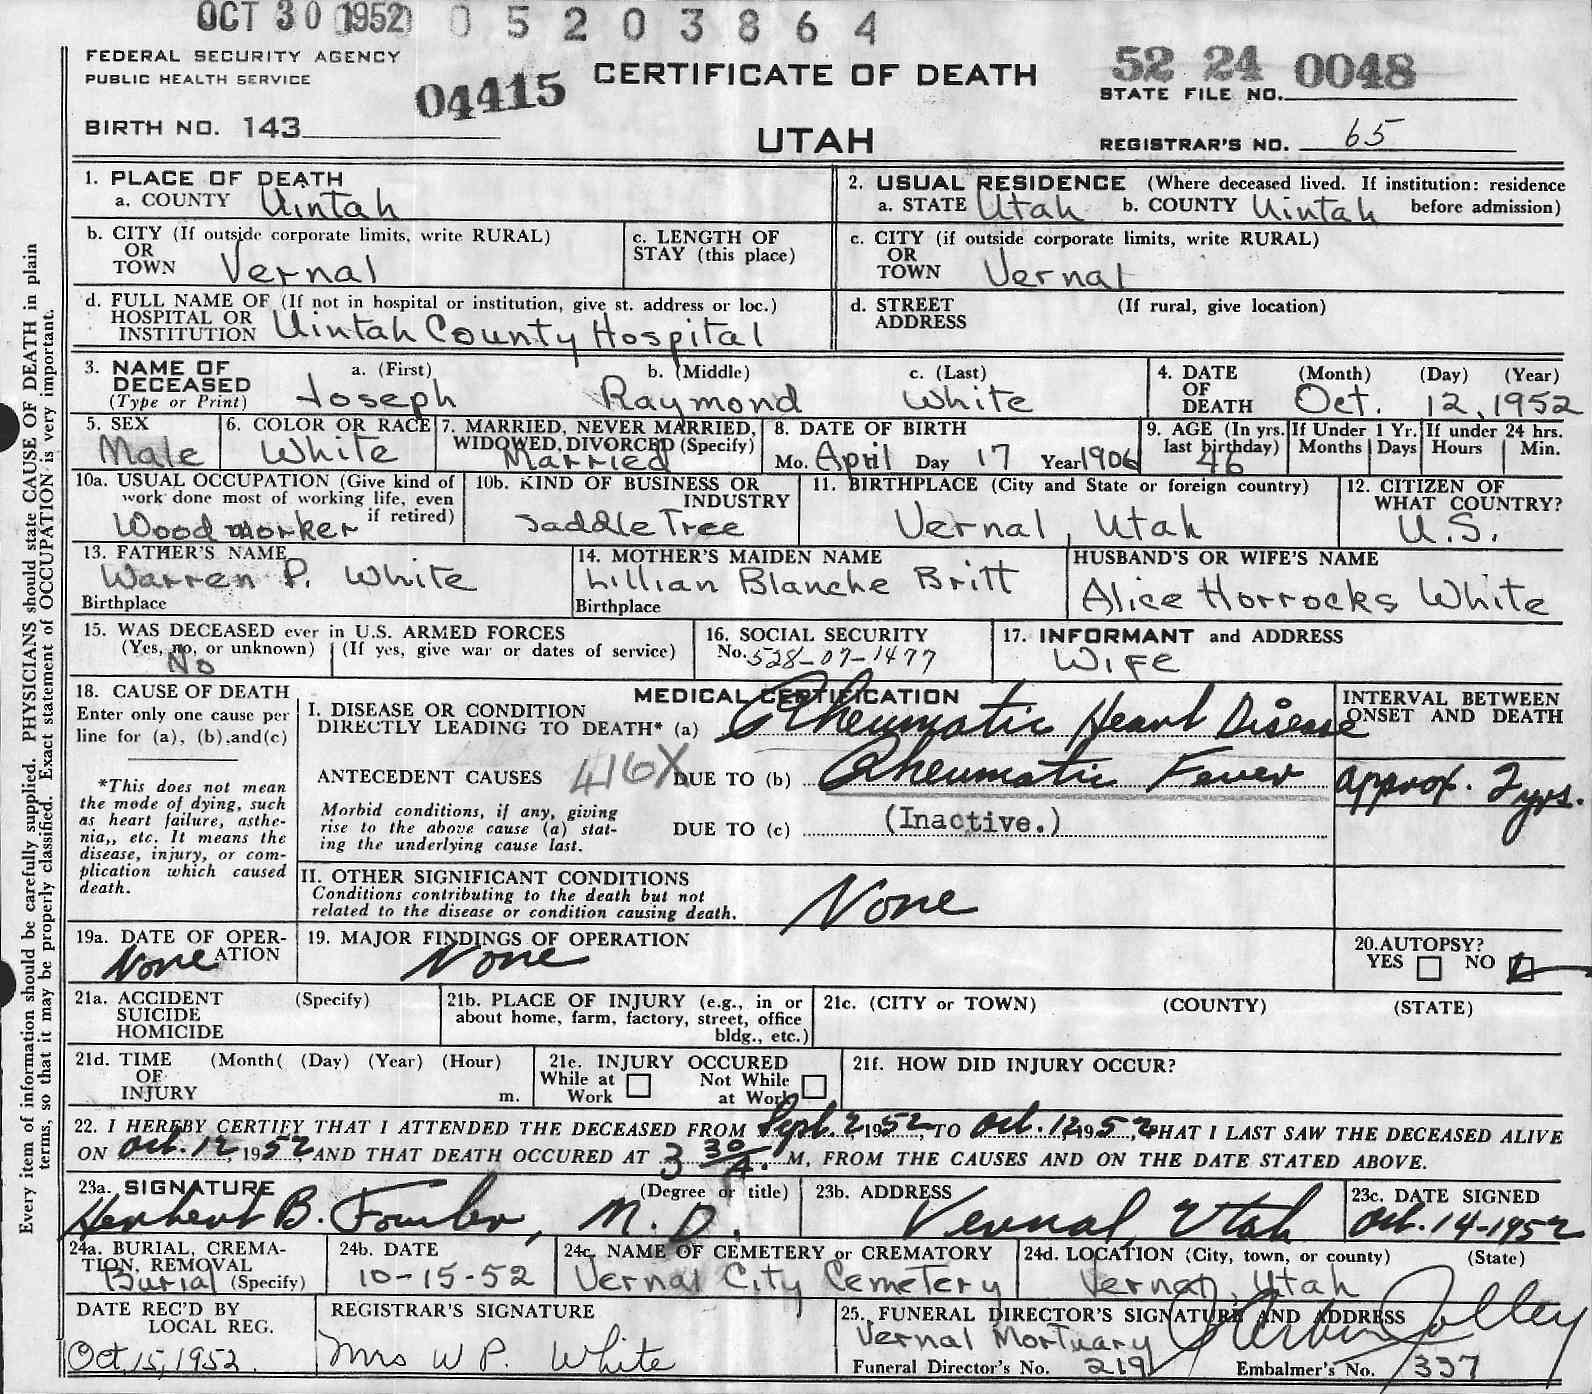 OCT 30 1952 0 5 2 0 3 8 6 4
FEDERAL SECURITY AGENCY
PUBLIC HEALTH SERVICE
04415
CERTIFICATE OF DEATH
52 24 0048
STATE FILE NO.
BIRTH NO. 143
UTAH
REGISTRAR'S NO. 65
Every item of information should be carefully supplied. PHYSICIANS should state CAUSE OF DEATH in plain
terms, so that it may be properly classified. Exact statement of OCCUPATION is very important.
1. PLACE OF DEATH
a. COUNTY Uintah
2. USUAL RESIDENCE (Where deceased lived. If institution: residence
a. STATE Utah b. COUNTY Uintah before admission)
b. CITY (If outside corporate limits, write RURAL)
OR
TOWN Vernal
c. LENGTH OF
STAY (this place)
c. CITY (if outside corporate limits, write RURAL)
OR
TOWN Vernal
d. FULL NAME OF (If not in hospital or institution, give st. address or loc.)
HOSPITAL OR
INSTITUTION Uintah County Hospital
d. STREET (If rural, give location)
ADDRESS
3. NAME OF a. (First) b. (Middle) c. (Last)
DECEASED
(Type or Print) Joseph Raymond White
4. DATE (Month) (Day) (Year)
OF
DEATH Oct. 12, 1952
5. SEX
Male
6. COLOR OR RACE
White
7. MARRIED, NEVER MARRIED,
WIDOWED, DIVORCED (Specify)
Married
8. DATE OF BIRTH
Mo. April Day 17 Year 1906
9. AGE (In yrs.
last birthday)
46
If Under 1 Yr.
Months Days
If under 24 hrs.
Hours Min.
10a. USUAL OCCUPATION (Give kind of
work done most of working life, even
if retired)
Wood worker
10b. KIND OF BUSINESS OR
INDUSTRY
Saddle Tree
11. BIRTHPLACE (City and State or foreign country)
Vernal, Utah
12. CITIZEN OF
WHAT COUNTRY?
U.S.
13. FATHER'S NAME
Warren P. White
Birthplace
14. MOTHER'S MAIDEN NAME
Lillian Blanche Britt
Birthplace
HUSBAND'S OR WIFE'S NAME
Alice Horrocks White
15. WAS DECEASED ever in U.S. ARMED FORCES
(Yes, no, or unknown) (If yes, give war or dates of service)
No
16. SOCIAL SECURITY
No. 528-07-1477
17. INFORMANT and ADDRESS
Wife
18. CAUSE OF DEATH
Enter only one cause per
line for (a), (b), and (c)
*This does not mean
the mode of dying, such
as heart failure, asthe-
nia,, etc. It means the
disease, injury, or com-
plication which caused
death.
MEDICAL CERTIFICATION
I. DISEASE OR CONDITION
DIRECTLY LEADING TO DEATH* (a) Rheumatic Heart Disease
INTERVAL BETWEEN
ONSET AND DEATH
ANTECEDENT CAUSES 416X DUE TO (b) Rheumatic Fever
approx. 2 yrs.
Morbid conditions, if any, giving
rise to the above cause (a) stat-
ing the underlying cause last.
DUE TO (c) (Inactive.)
II. OTHER SIGNIFICANT CONDITIONS
Conditions contributing to the death but not
related to the disease or condition causing death.
None
19a. DATE OF OPER-
ATION
None
19. MAJOR FINDINGS OF OPERATION
None
20. AUTOPSY?
YES NO
21a. ACCIDENT (Specify)
SUICIDE
HOMICIDE
21b. PLACE OF INJURY (e.g., in or
about home, farm, factory, street, office
bldg., etc.)
21c. (CITY or TOWN) (COUNTY) (STATE)
21d. TIME (Month( (Day) (Year) (Hour)
OF
INJURY m.
21e. INJURY OCCURED
While at Not While
Work at Work
21f. HOW DID INJURY OCCUR?
22. I HEREBY CERTIFY THAT I ATTENDED THE DECEASED FROM Sept. 2, 1952, TO Oct. 12, 1952, THAT I LAST SAW THE DECEASED ALIVE
ON Oct. 12, 1952, AND THAT DEATH OCCURED AT 3 30/A. M, FROM THE CAUSES AND ON THE DATE STATED ABOVE.
23a. SIGNATURE (Degree or title)
Herbert B. Fowler, M.D.
23b. ADDRESS
Vernal, Utah
23c. DATE SIGNED
Oct. 14-1952
24a. BURIAL, CREMA-
TION, REMOVAL
Burial (Specify)
24b. DATE
10-15-52
24c. NAME OF CEMETERY or CREMATORY
Vernal City Cemetery
24d. LOCATION (City, town, or county) (State)
Vernal, Utah
DATE REC'D BY
LOCAL REG.
Oct. 15, 1952
REGISTRAR'S SIGNATURE
Mrs W P. White
25. FUNERAL DIRECTOR'S SIGNATURE AND ADDRESS
Vernal Mortuary
Jolley
Funeral Director's No. 219 Embalmer's No. 337